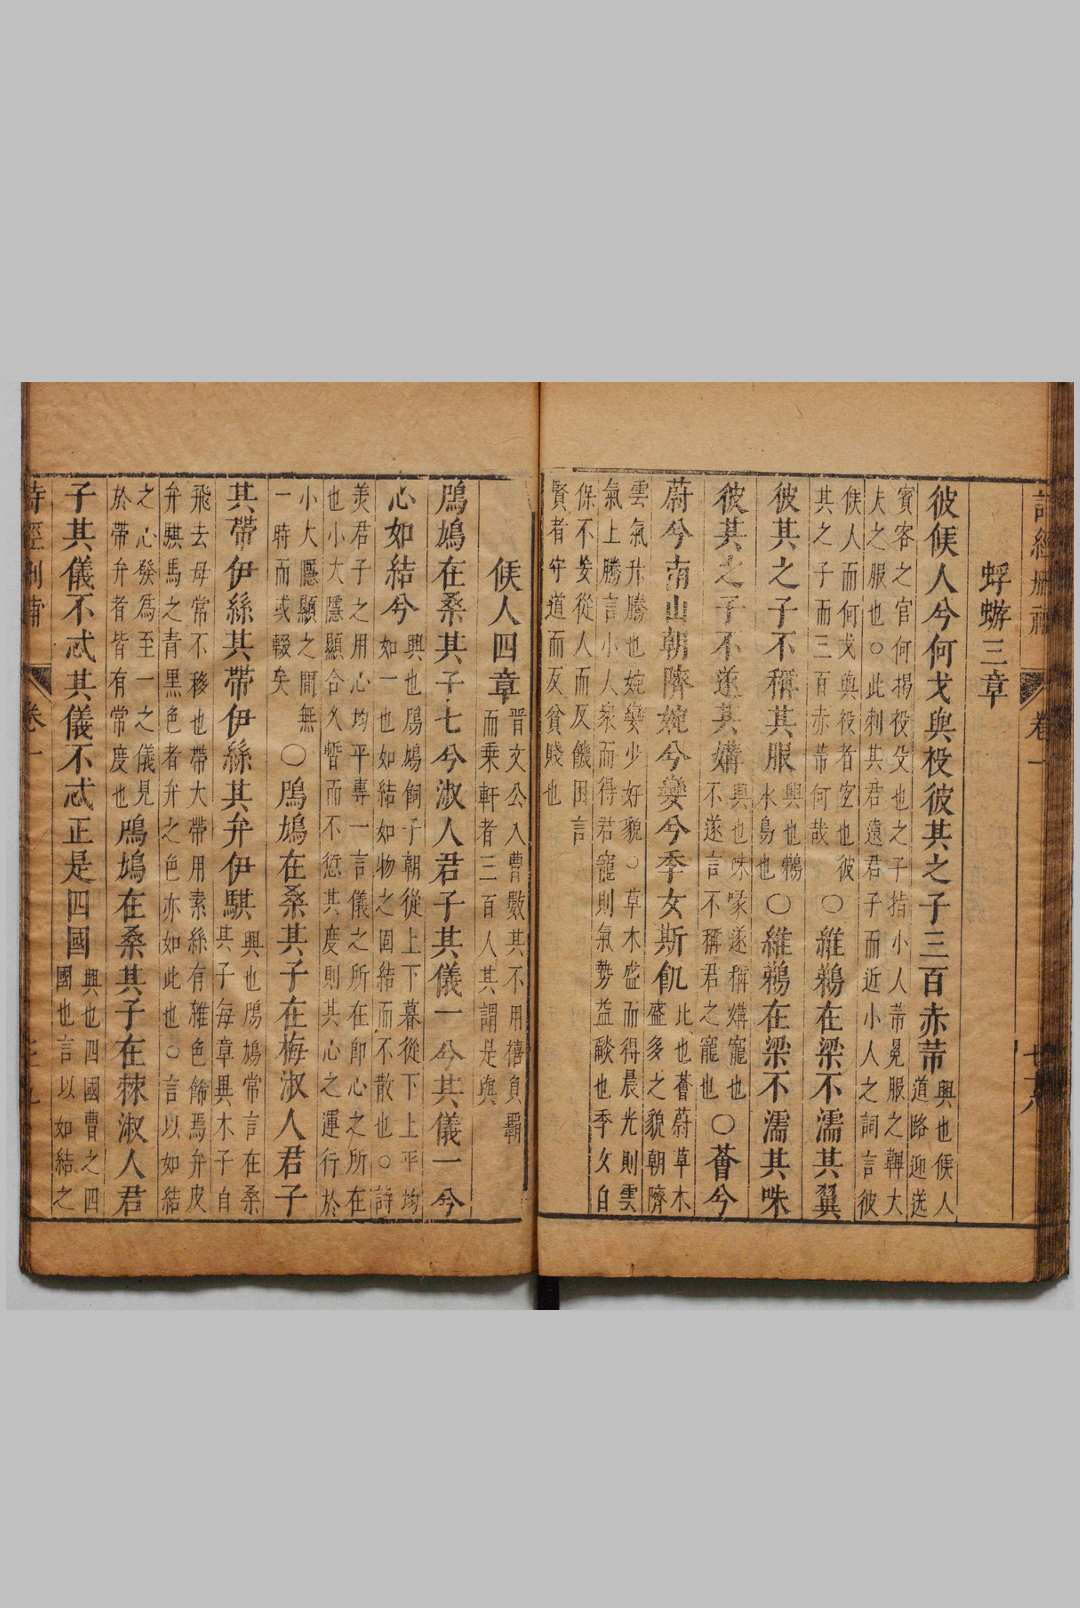 卷一
蜉蝣三章
彼候人兮何戈與祋彼其之子三百赤芾
興也候人
道路迎送
賓客之官何揭祋殳也之子指小人芾冕服之韠大
夫之服也○此刺其君遠君子而近小人之詞言彼
候人而何戈與祋者宜也彼
其之子而三百赤芾何哉
○維鵜在梁不濡其翼
彼其之子不稱其服
興也鵜
水鳥也
○維鵜在梁不濡其咮
彼其之子不遂其媾
興也咮喙遂稱媾寵也
不遂言不稱君之寵也
○薈兮
蔚兮南山朝隮婉兮孌兮季女斯飢
比也薈蔚草木
盛多之貌朝隮
雲氣升騰也婉孌少好貌○草木盛而得晨光則雲
氣上騰言小人衆而得君寵則氣勢益燄也季女自
保不妄從人而反饑困言
賢者守道而反貧賤也
候人四章
晋文公入曹數其不用僖負覊
而乗軒者三百人其謂是與
鳲鳩在桑其子七兮淑人君子其儀一兮其儀一兮
心如結兮
興也鳲鳩飼子朝從上下暮從下上平均
如一也如結如物之固結而不散也○詩
美君子之用心均平專一言儀之所在即心之所在
也小大隱顯合久暫而不愆其度則其心之運行於
小大隱顯之間無
一時而或輟矣
○鳲鳩在桑其子在梅淑人君子
其帶伊絲其帶伊絲其弁伊騏
興也鳲鳩常言在桑
其子每章異木子自
飛去母常不移也帶大帶用素絲有雜色餙焉弁皮
弁騏馬之青黑色者弁之色亦如此也○言以如結
之心發爲至一之儀見
於帶弁者皆有常度也
鳲鳩在桑其子在棘淑人君
子其儀不忒其儀不忒正是四國
興也四國曹之四
國也言以如結之
卷一